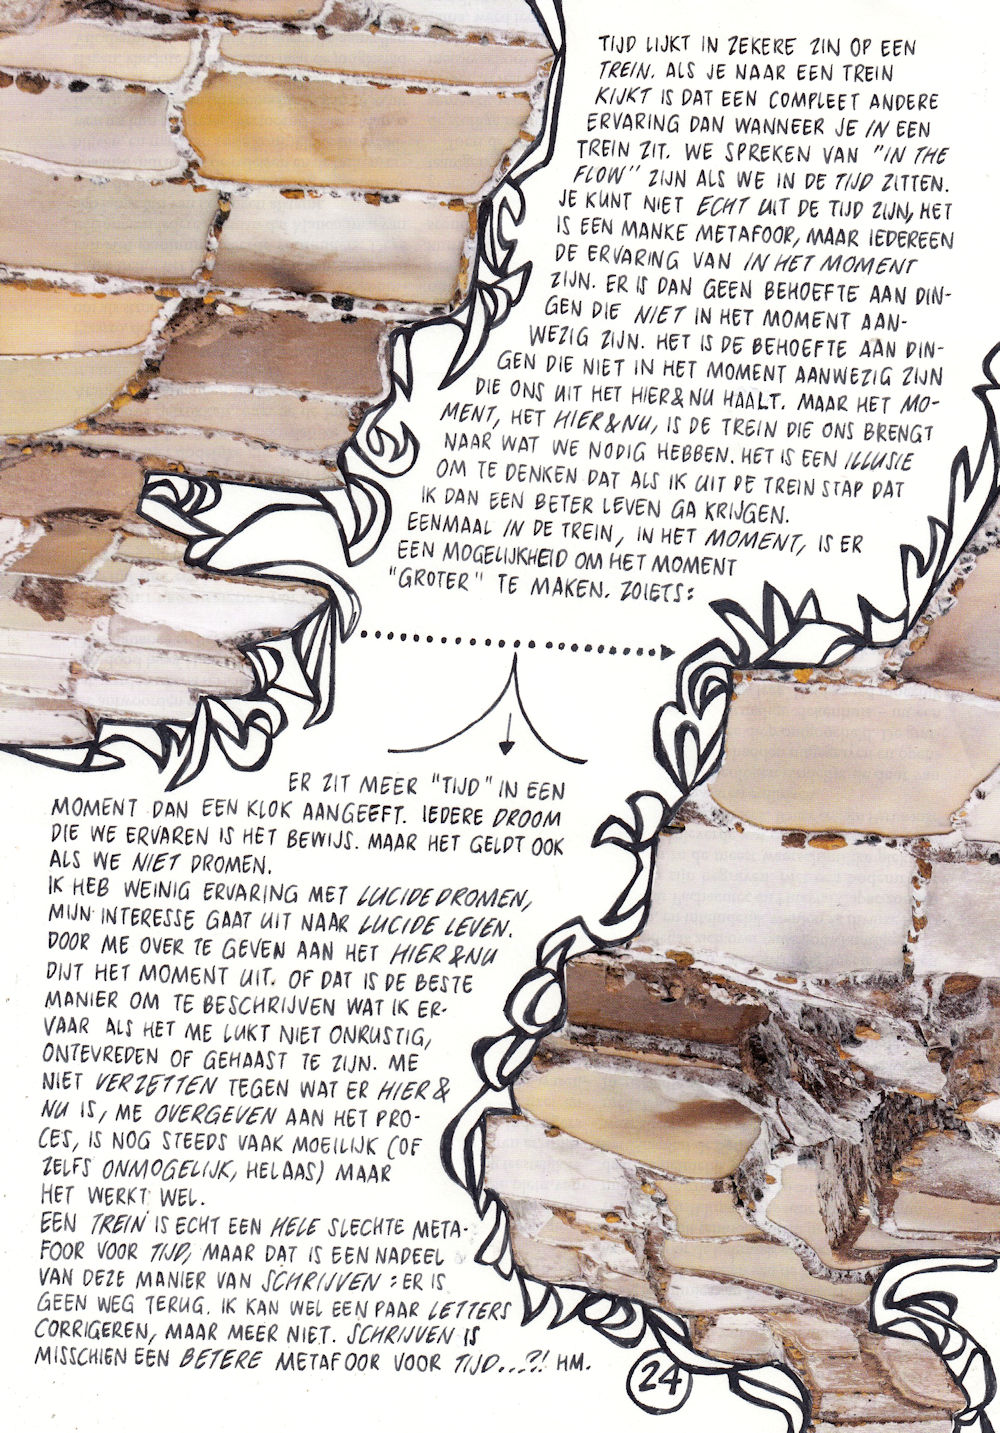 TIJD LIJKT IN ZEKERE ZIN OP EEN
TREIN. ALS JE NAAR EEN TREIN
KIJKT IS DAT EEN COMPLEET ANDERE
ERVARING DAN WANNEER JE IN EEN
TREIN ZIT. WE SPREKEN VAN "IN THE
FLOW" ZIJN ALS WE IN DE TIJD ZITTEN.
JE KUNT NIET ECHT UIT DE TIJD ZIJN, HET
IS EEN MANKE METAFOOR, MAAR IEDEREEN
DE ERVARING VAN IN HET MOMENT
ZIJN. ER IS DAN GEEN BEHOEFTE AAN DIN-
GEN DIE NIET IN HET MOMENT AAN-
WEZIG ZIJN. HET IS DE BEHOEFTE AAN DIN-
GEN DIE NIET IN HET MOMENT AANWEZIG ZIJN
DIE ONS UIT HET HIER&NU HAALT. MAAR HET MO-
MENT, HET HIER&NU, IS DE TREIN DIE ONS BRENGT
NAAR WAT WE NODIG HEBBEN. HET IS EEN ILLUSIE
OM TE DENKEN DAT ALS IK UIT DE TREIN STAP DAT
IK DAN EEN BETER LEVEN GA KRIJGEN.
EENMAAL IN DE TREIN, IN HET MOMENT, IS ER
EEN MOGELIJKHEID OM HET MOMENT
"GROTER" TE MAKEN. ZOIETS:
ER ZIT MEER "TIJD" IN EEN
MOMENT DAN EEN KLOK AANGEEFT. IEDERE DROOM
DIE WE ERVAREN IS HET BEWIJS. MAAR HET GELDT OOK
ALS WE NIET DROMEN.
IK HEB WEINIG ERVARING MET LUCIDE DROMEN,
MIJN INTERESSE GAAT UIT NAAR LUCIDE LEVEN.
DOOR ME OVER TE GEVEN AAN HET HIER&NU
DIJT HET MOMENT UIT. OF DAT IS DE BESTE
MANIER OM TE BESCHRIJVEN WAT IK ER-
VAAR ALS HET ME LUKT NIET ONRUSTIG,
ONTEVREDEN OF GEHAAST TE ZIJN. ME
NIET VERZETTEN TEGEN WAT ER HIER &
NU IS, ME OVERGEVEN AAN HET PRO-
CES, IS NOG STEEDS VAAK MOEILIJK (OF
ZELFS ONMOGELIJK, HELAAS) MAAR
HET WERKT WEL.
EEN TREIN IS ECHT EEN HELE SLECHTE META-
FOOR VOOR TIJD, MAAR DAT IS EEN NADEEL
VAN DEZE MANIER VAN SCHRIJVEN: ER IS
GEEN WEG TERUG. IK KAN WEL EEN PAAR LETTERS
CORRIGEREN, MAAR MEER NIET. SCHRIJVEN IS
MISSCHIEN EEN BETERE METAFOOR VOOR TIJD...?! HM.
24